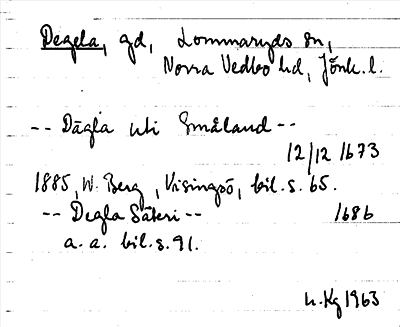 Degla, gd, Lommaryds sn,
Norra Vedbo hd, Jönk. l.
-- Dägla uti Småland --
12/12 1673
1885, W. Berg, Visingsö, bil. s. 65.
-- Degla Säteri --  1686
a. a. bil. s. 91.
1963